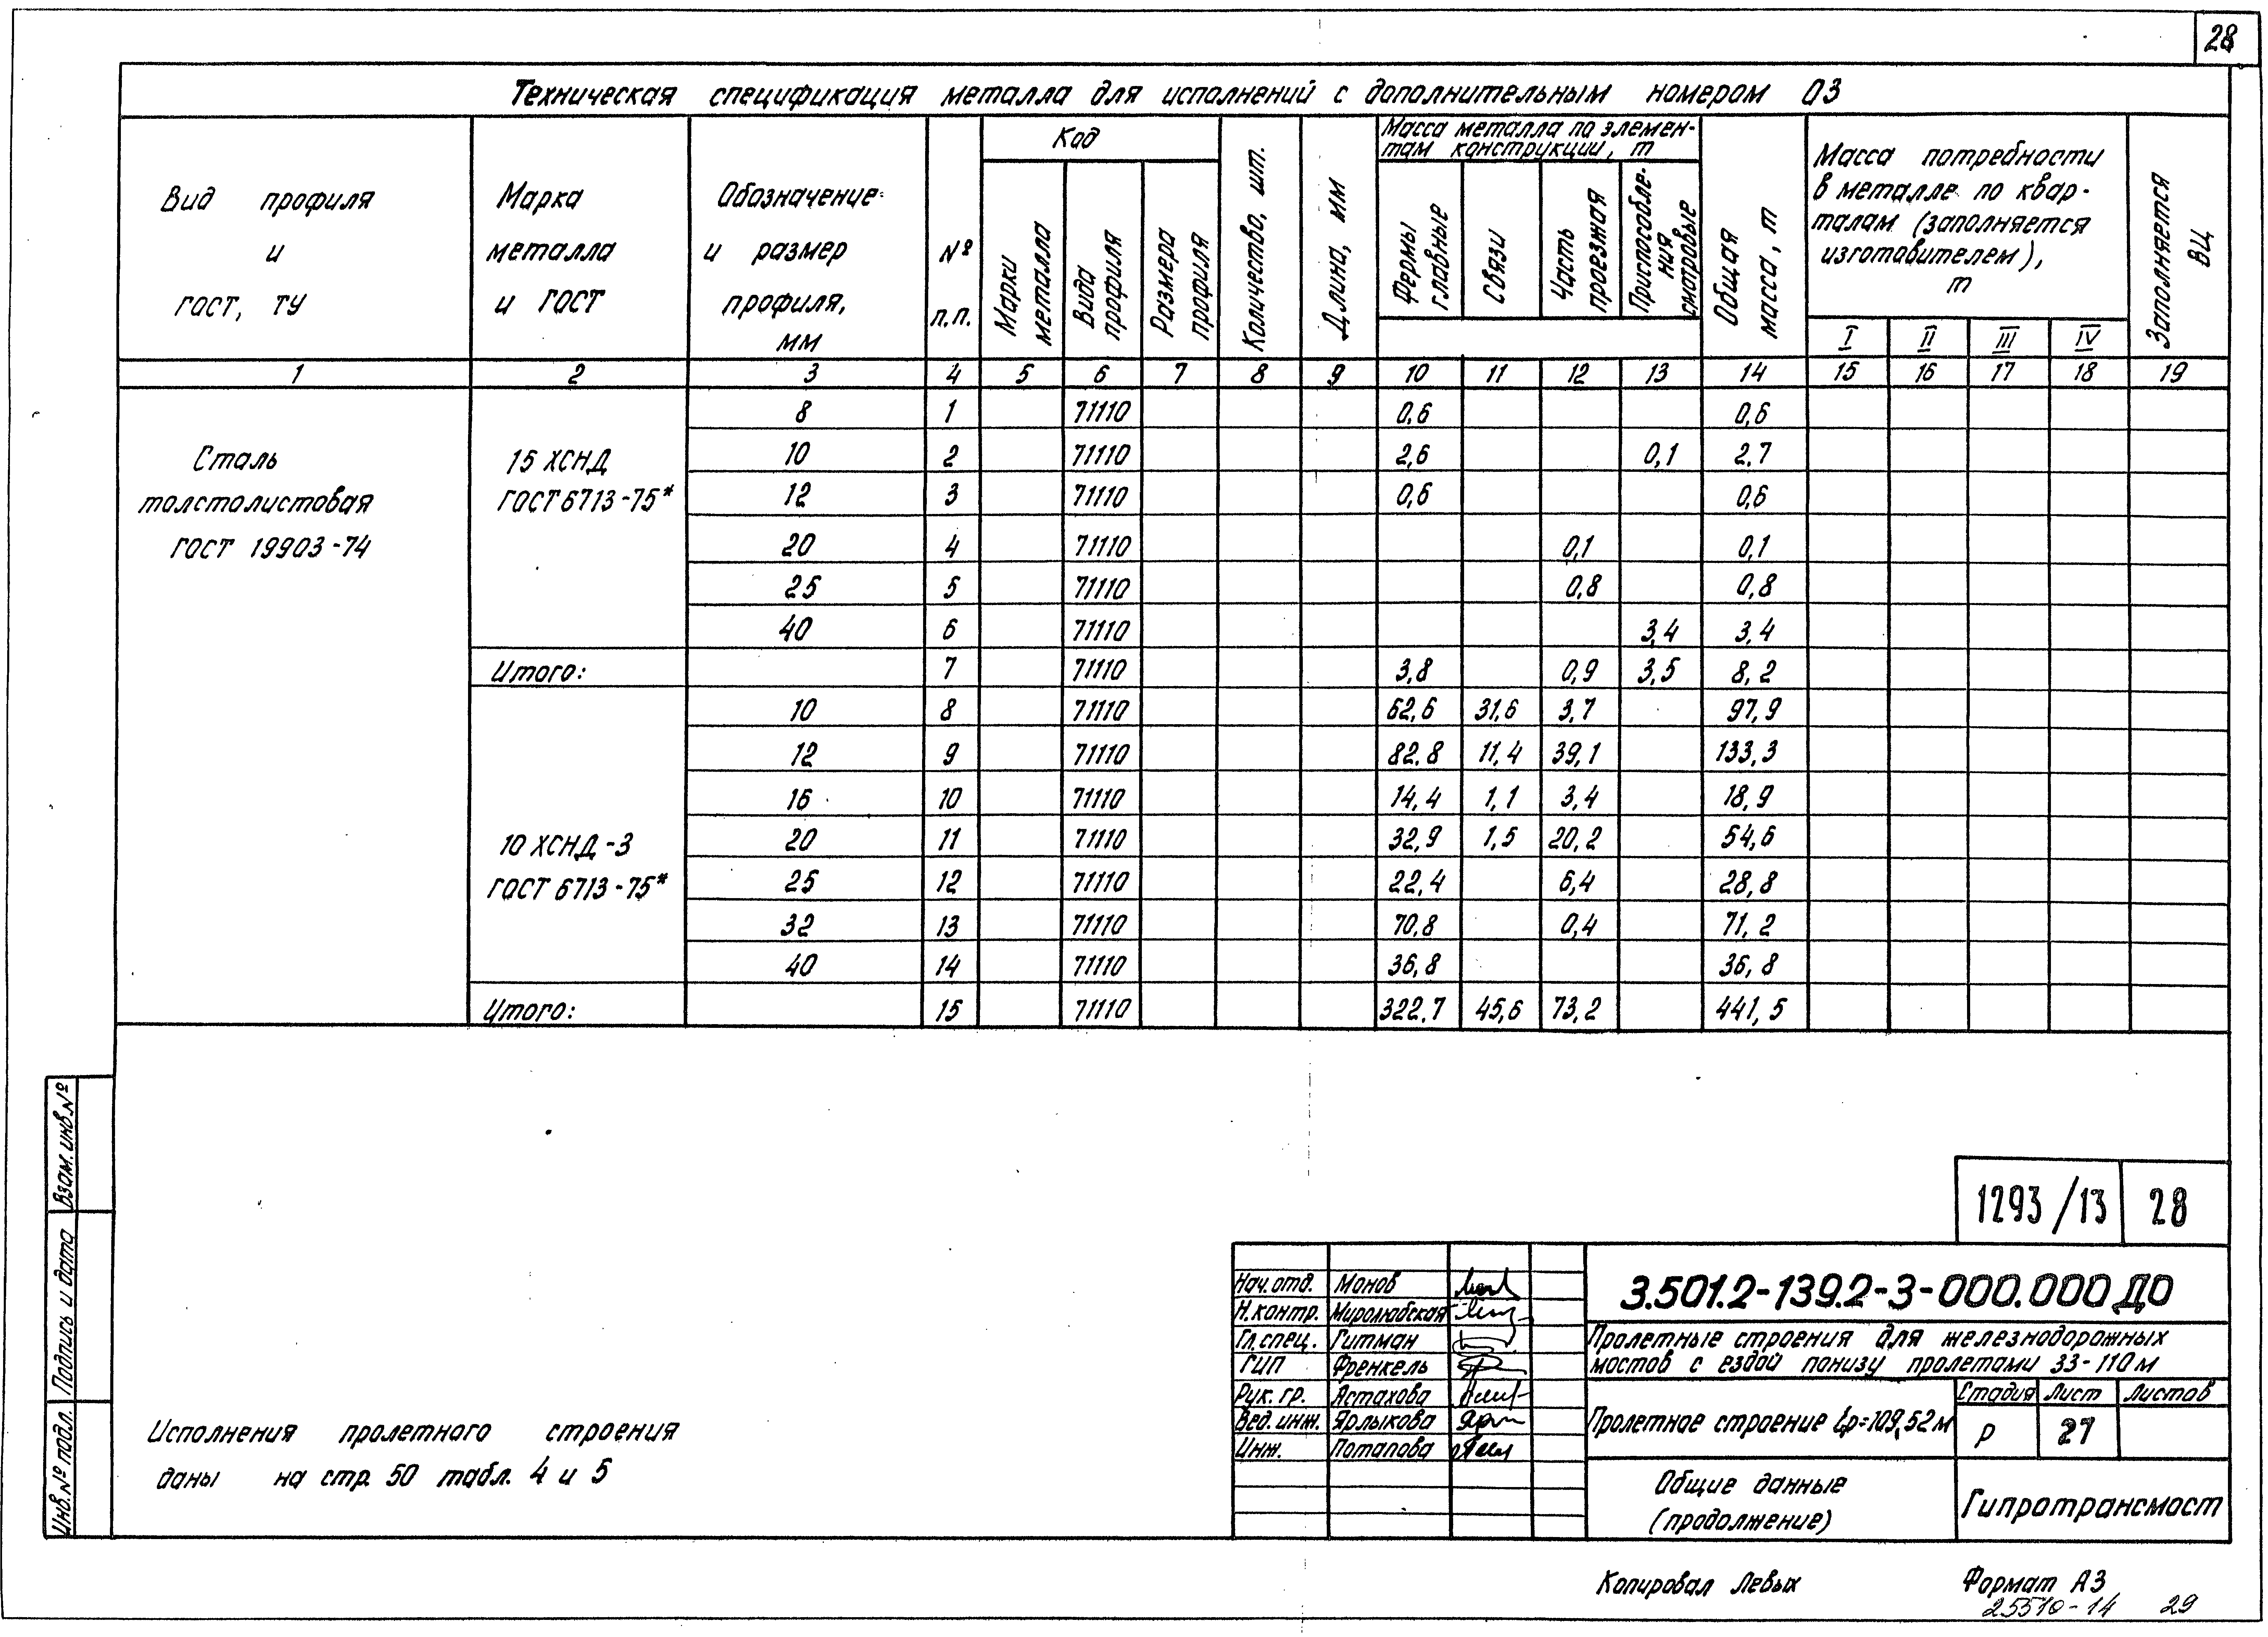 28
Техническая спецификация металла для исполнений с дополнительным номером 03
Вид профиля и ГОСТ, ТУ
Марка металла и ГОСТ
Обозначение и размер профиля, мм
№ п.п.
Код
Марки металла
Вида профиля
Размера профиля
Количество, шт.
Длина, мм
Масса металла по элемен-
там конструкции, т
Фермы главные
Связи
Часть проезжая
Приспособле-
ния
смотровые
Общая масса, т
Масса потребности
в металле по квар-
талам (заполняется
изготовителем),
т
I II III IV
Заполняется ВЦ
1 2 3 4 5 6 7 8 9 10 11 12 13 14 15 16 17 18 19
8 1 71110 0,6 0,6
Сталь 15 ХСНД 10 2 71110 2,6 0,1 2,7
толстолистовая ГОСТ 6713-75* 12 3 71110 0,6 0,6
ГОСТ 19903-74 20 4 71110 0,1 0,1
25 5 71110 0,8 0,8
40 6 71110 3,4 3,4
Итого: 7 71110 3,8 0,9 3,5 8,2
10 8 71110 62,6 31,6 3,7 97,9
12 9 71110 82,8 11,4 39,1 133,3
16 10 71110 14,4 1,1 3,4 18,9
10 ХСНД-3 20 11 71110 32,9 1,5 20,2 54,6
ГОСТ 6713-75* 25 12 71110 22,4 6,4 28,8
32 13 71110 70,8 0,4 71,2
40 14 71110 36,8 36,8
Итого: 15 71110 322,7 45,6 73,2 441,5
Взам. инв. №
Подпись и дата
Инв. № подл.
Исполнения пролетного строения
даны на стр. 50 табл. 4 и 5
1293/13 28
Нач. отд. Монов
Н. контр. Миролюбская
Гл. спец. Гитман
ГИП Френкель
Рук. гр. Астахова
Вед. инж. Ярлыкова
Инж. Потапова
3.501.2-139.2-3-000.000 ДО
Пролетные строения для железнодорожных
мостов с ездой понизу пролетами 33-110 м
Пролетное строение lр=109,52 м
Стадия Лист Листов
Р 27
Общие данные
(продолжение)
Гипротрансмост
Копировал Левых
Формат А3
25510-14 29